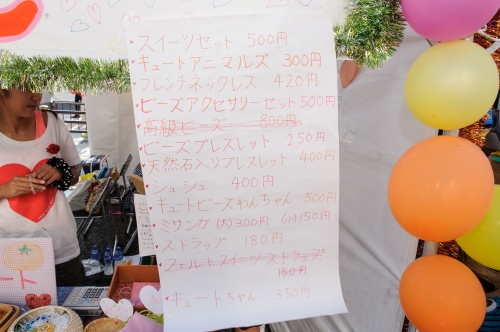 ♥スイーツセット 500円
♥キュートアニマルズ 300円
♥フレンチネックレス 420円
♥ビーズアクセサリーセット 500円
♥高級ビーズ 800円
♥ビーズブレスレット 250円
♥天然石入りブレスレット 400円
♥シュシュ 400円
♥キュートビーズわんちゃん 500円
♥ミサンガ (大)300円 (小)150円
♥ストラップ 180円
♥フェルトスイーツストラップ
150円
♥キュートちゃん 350円
ート